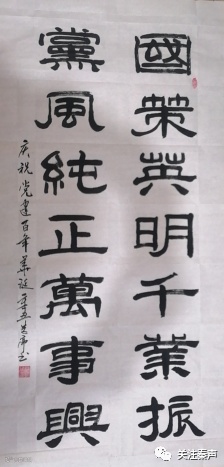 國策英明千業振
黨風純正萬事興
庆祝党建百年华诞
关注泰声